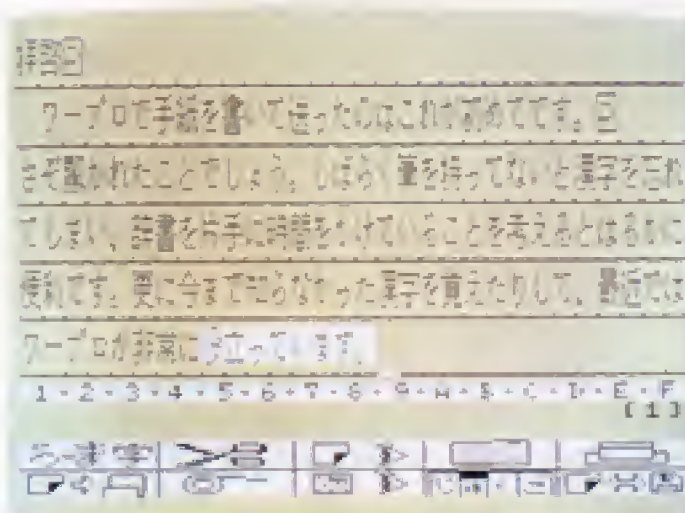 ワープロで手紙を書いて送ったのはこれが初めてです。
さぞ驚かれたことでしょう。しばらく筆を持ってないと漢字を忘れ
てしまい、辞書を片手に時間をかけていることを考えるとはるかに
便利です。更に今まで知らなかった漢字を覚えたりして、最近では
ワープロが非常に役立っています。
1・2・3・4・5・6・7・8・9・A・B・C・D・E・F
[1]